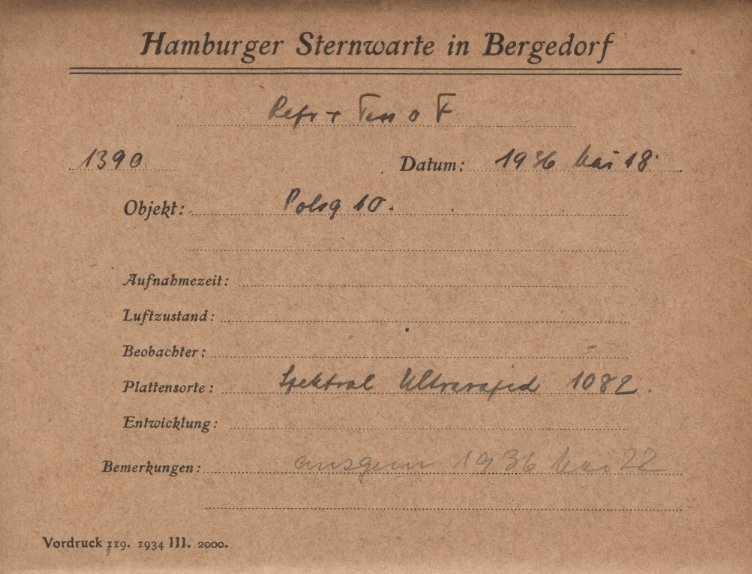 Hamburger Sternwarte in Bergedorf
Refr + Tess o F
1390 Datum: 1936 Mai 18
Objekt: Polsq 10.
Aufnahmezeit:
Luftzustand:
Beobachter:
Plattensorte: Spektral Ultrarapid 1082
Entwicklung:
Bemerkungen: ausgem 1936 Mai 22
Vordruck 119. 1934 III. 2000.